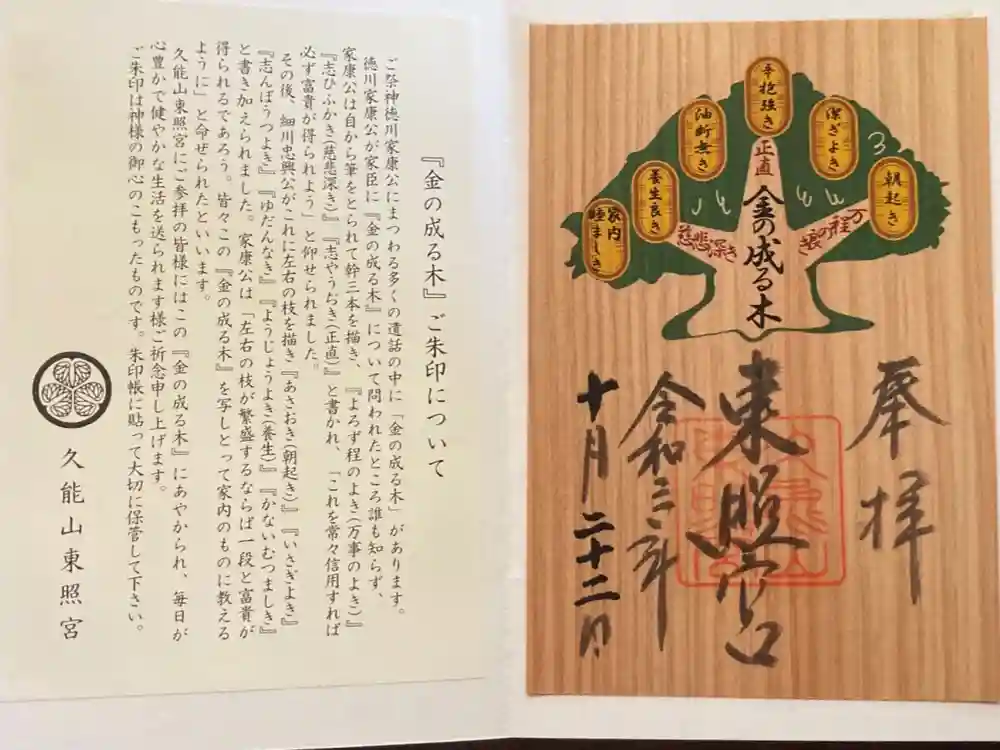 『金の成る木』ご朱印について
ご祭神徳川家康公にまつわる多くの遺話の中に「金の成る木」があります。
徳川家康公が家臣に『金の成る木』について問われたところ誰も知らず、
家康公は自から筆をとられて幹三本を描き、『よろず程のよき(万事のよき)』
『志ひふかき(慈悲深き)』『志やうぢき(正直)』と書かれ、「これを常々信用すれば
必ず富貴が得られよう」と仰せられました。
その後、細川忠興公がこれに左右の枝を描き『あさおき(朝起き)』『いさぎよき』
『志んぼうつよき』『ゆだんなき』『ようじょうよき(養生)』『かないむつましき』
と書き加えられました。家康公は「左右の枝が繁盛するならば一段と富貴が
得られるであろう。皆々この『金の成る木』を写しとって家内のものに教える
ように」と命ぜられたといいます。
久能山東照宮にご参拝の皆様にはこの『金の成る木』にあやかられ、毎日が
心豊かで健やかな生活を送られます様ご祈念申し上げます。
ご朱印は神様の御心のこもったものです。朱印帳に貼って大切に保管して下さい。
久能山東照宮
朝起き
潔ぎよき
辛抱強き
油断無き
養生良き
家内
睦ましき
万
程の
正直
慈悲深き
金の成る木
奉拝
東照宮
令和三年
十月二十二日